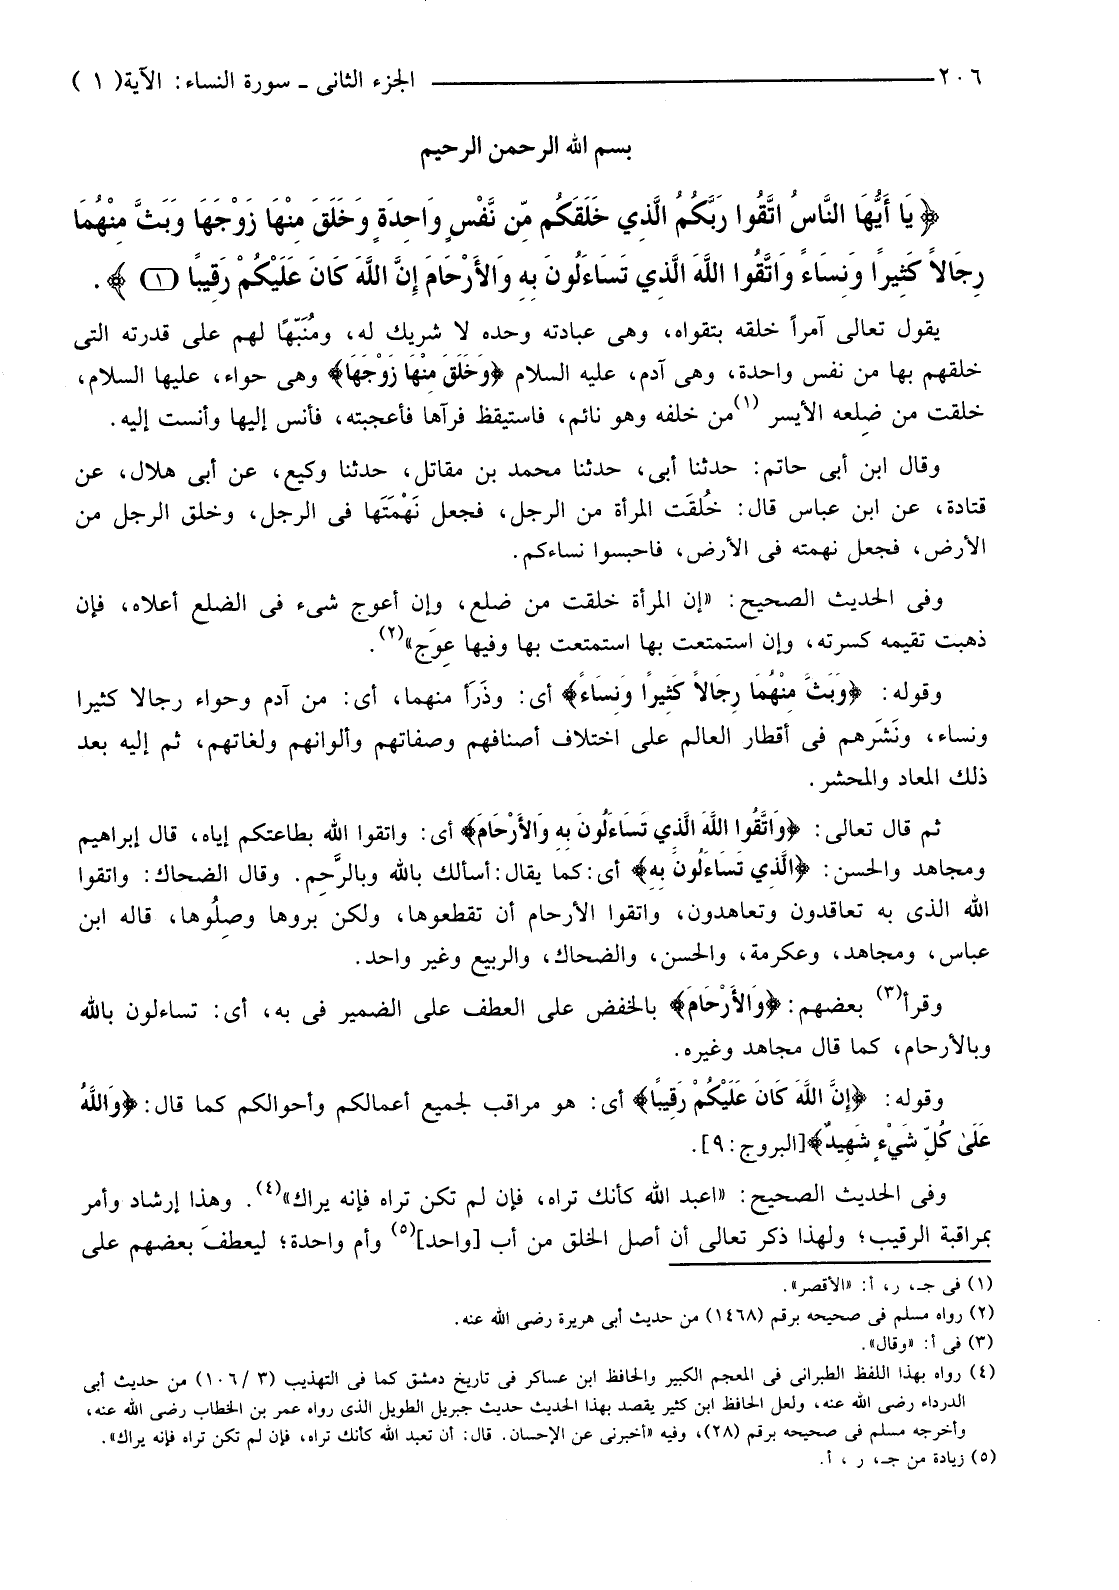 ٢٠٦ الجزء الثانى ـ سورة النساء: الآية( ١ )
بسم الله الرحمن الرحيم
﴿ يَا أَيُّهَا النَّاسُ اتَّقُوا رَبَّكُمُ الَّذِي خَلَقَكُم مِّن نَّفْسٍ وَاحِدَةٍ وَخَلَقَ مِنْهَا زَوْجَهَا وَبَثَّ مِنْهُمَا
رِجَالاً كَثِيرًا وَنِسَاءً وَاتَّقُوا اللَّهَ الَّذِي تَسَاءَلُونَ بِهِ وَالأَرْحَامَ إِنَّ اللَّهَ كَانَ عَلَيْكُمْ رَقِيبًا (١) ﴾ .
يقول تعالى آمراً خلقه بتقواه، وهى عبادته وحده لا شريك له، ومُنَبّهًا لهم على قدرته التى
خلقهم بها من نفس واحدة، وهى آدم، عليه السلام ﴿وَخَلَقَ مِنْهَا زَوْجَهَا﴾ وهى حواء، عليها السلام،
خلقت من ضِلعه الأيسر (١)من خلفه وهو نائم، فاستيقظ فرآها فأعجبته، فأنس إليها وأنست إليه.
وقال ابن أبى حاتم: حدثنا أبى، حدثنا محمد بن مقاتل، حدثنا وكيع، عن أبى هلال، عن
قتادة، عن ابن عباس قال: خُلقَت المرأة من الرجل، فجعل نَهْمَتَها فى الرجل، وخلق الرجل من
الأرض، فجعل نهمته فى الأرض، فاحبسوا نساءكم.
وفى الحديث الصحيح: «إن المرأة خلقت من ضلع، وإن أعوج شىء فى الضلع أعلاه، فإن
ذهبت تقيمه كسرته، وإن استمتعت بها استمتعت بها وفيها عِوَج»(٢).
وقوله: ﴿وَبَثَّ مِنْهُمَا رِجَالاً كَثِيرًا وَنِسَاءً﴾ أى: وذَرَأ منهما، أى: من آدم وحواء رجالا كثيرا
ونساء، ونَشَرهم فى أقطار العالم على اختلاف أصنافهم وصفاتهم وألوانهم ولغاتهم، ثم إليه بعد
ذلك المعاد والمحشر.
ثم قال تعالى: ﴿وَاتَّقُوا اللَّهَ الَّذِي تَسَاءَلُونَ بِهِ وَالأَرْحَامَ﴾ أى: واتقوا الله بطاعتكم إياه، قال إبراهيم
ومجاهد والحسن: ﴿الَّذِي تَسَاءَلُونَ بِهِ﴾ أى:كما يقال:أسألك بالله وبالرَّحِم. وقال الضحاك: واتقوا
الله الذى به تعاقدون وتعاهدون، واتقوا الأرحام أن تقطعوها، ولكن بروها وصِلُوها، قاله ابن
عباس، ومجاهد، وعكرمة، والحسن، والضحاك، والربيع وغير واحد.
وقرأ(٣) بعضهم:﴿وَالأَرْحَامَ﴾ بالخفض على العطف على الضمير فى به، أى: تساءلون بالله
وبالأرحام، كما قال مجاهد وغيره.
وقوله: ﴿إِنَّ اللَّهَ كَانَ عَلَيْكُمْ رَقِيبًا﴾ أى: هو مراقب لجميع أعمالكم وأحوالكم كما قال:﴿وَاللَّهُ
عَلَىٰ كُلِّ شَيْءٍ شَهِيدٌ﴾[البروج:٩].
وفى الحديث الصحيح: «اعبد الله كأنك تراه، فإن لم تكن تراه فإنه يراك»(٤). وهذا إرشاد وأمر
بمراقبة الرقيب؛ ولهذا ذكر تعالى أن أصل الخلق من أب [واحد](٥) وأم واحدة؛ ليعطفَ بعضهم على
(١) فى جـ، ر، أ: «الأقصر».
(٢) رواه مسلم فى صحيحه برقم (١٤٦٨) من حديث أبى هريرة رضى الله عنه.
(٣) فى أ: «وقال».
(٤) رواه بهذا اللفظ الطبرانى فى المعجم الكبير والحافظ ابن عساكر فى تاريخ دمشق كما فى التهذيب (٣ /١٠٦) من حديث أبى
الدرداء رضى الله عنه، ولعل الحافظ ابن كثير يقصد بهذا الحديث حديث جبريل الطويل الذى رواه عمر بن الخطاب رضى الله عنه،
وأخرجه مسلم فى صحيحه برقم (٢٨)، وفيه «أخبرنى عن الإحسان. قال: أن تعبد الله كأنك تراه، فإن لم تكن تراه فإنه يراك».
(٥) زيادة من جـ، ر ، أ.